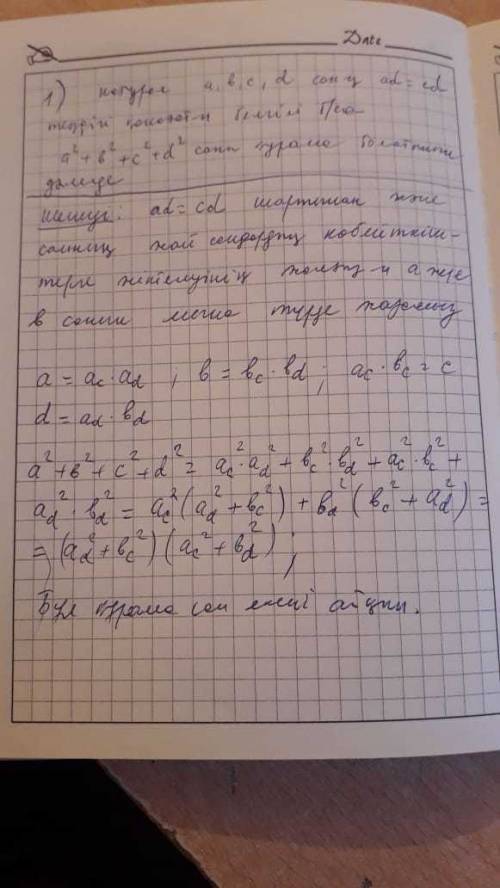 Date
1) натурал a, в, c, d сан ad = cd
теңдігі қанағат-н белгілі б/са
a² + в² + c² + d² саны құрама болатынын
дәлелде
шешуі: ad = cd шартынан және
санның жай сандардың көбейткіш-
терге жіктелуінің жалғыз-н a және
в санын мына түрде жазамыз
a = ac · ad ; в = вc · вd ; ac · вc = c
d = ad · вd
a² + в² + c² + d² = ac² · ad² + вc² · вd² + ac² · вc² +
ad² · вd² = ac² (ad² + вc²) + вd² (вc² + ad²) =
= (ad² + вc²) (ac² + вd²) ;
Бұл құрама сан екені айқын.